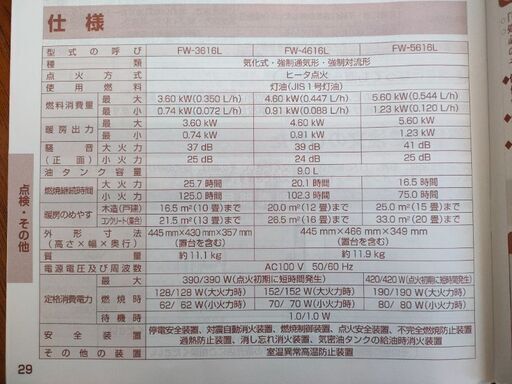 仕様
型式の呼び FW-3616L FW-4616L FW-5616L
種類 気化式・強制通気形・強制対流形
点火方式 ヒータ点火
使用燃料 灯油(JIS1号灯油)
燃料消費量 最大 3.60 kW(0.350 L/h) 4.60 kW(0.447 L/h) 5.60 kW(0.544 L/h)
最小 0.74 kW(0.072 L/h) 0.91 kW(0.088 L/h) 1.23 kW(0.120 L/h)
暖房出力 最大 3.60 kW 4.60 kW 5.60 kW
最小 0.74 kW 0.91 kW 1.23 kW
騒音(正面) 大火力 37 dB 39 dB 41 dB
小火力 25 dB 24 dB 25 dB
油タンク容量 9.0 L
燃焼継続時間 大火力 25.7 時間 20.1 時間 16.5 時間
小火力 125.0 時間 102.3 時間 75.0 時間
暖房のめやす 木造(戸建) 16.5 m²(10 畳)まで 20.0 m²(12 畳)まで 25.0 m²(15 畳)まで
コンクリート(集合) 21.5 m²(13 畳)まで 26.5 m²(16 畳)まで 33.0 m²(20 畳)まで
外形寸法(高さ×幅×奥行) 445 mm×430 mm×357 mm(置台を含む) 445 mm×466 mm×349 mm(置台を含む)
質量 約 11.1 kg 約 11.9 kg
電源電圧及び周波数 AC100 V 50/60 Hz
定格消費電力 最大 390/390 W(点火初期に短時間発生) 420/420 W(点火初期に短時間発生)
燃焼時 128/128 W(大火力時) 152/152 W(大火力時) 190/190 W(大火力時)
62/ 62 W(小火力時) 70/ 70 W(小火力時) 80/ 80 W(小火力時)
待機時 1.0/1.0 W
安全装置 停電安全装置、対震自動消火装置、燃焼制御装置、点火安全装置、不完全燃焼防止装置
過熱防止装置、消し忘れ消火装置、気密油タンクの給油時消火装置
その他の装置 室温異常高温防止装置
点検・その他
29